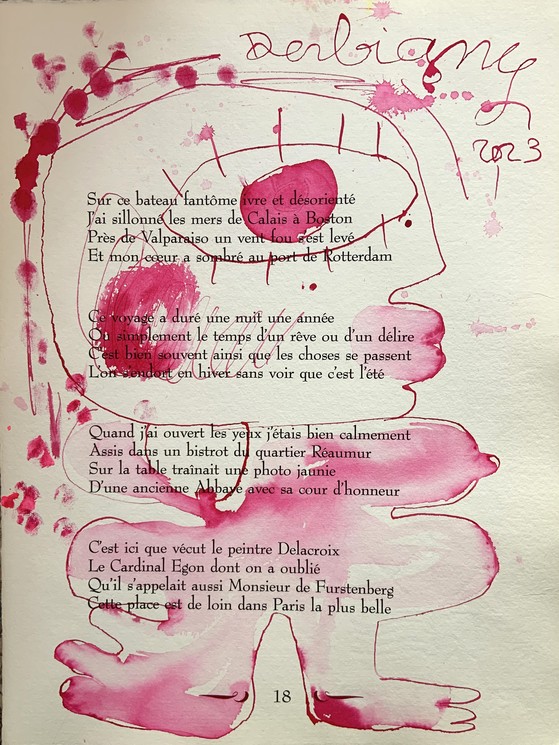 Derbigny
2023
Sur ce bateau fantôme ivre et désorienté
J'ai sillonné les mers de Calais à Boston
Près de Valparaiso un vent fou s'est levé
Et mon cœur a sombré au port de Rotterdam
Ce voyage a duré une nuit une année
Ou simplement le temps d'un rêve ou d'un délire
C'est bien souvent ainsi que les choses se passent
L'on s'endort en hiver sans voir que c'est l'été
Quand j'ai ouvert les yeux j'étais bien calmement
Assis dans un bistrot du quartier Réaumur
Sur la table traînait une photo jaunie
D'une ancienne Abbaye avec sa cour d'honneur
C'est ici que vécut le peintre Delacroix
Le Cardinal Egon dont on a oublié
Qu'il s'appelait aussi Monsieur de Furstenberg
Cette place est de loin dans Paris la plus belle
18